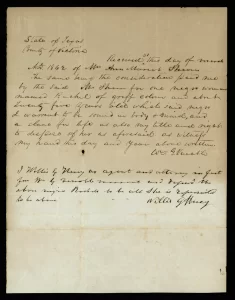 State of Texas
County of Victoria
Received this day of
1862 of Mrs Ann
The same being the consideration paid me
by the said for one negro woman
named Rachel of griff colour and about
twenty five years old which said negro
I warrant to be sound in body & mind, and
a slave for life as also my title and right
to dispose of her as aforesaid as witness
my hand this day and year above written
Wm G
I Willis G as agent and attorney in fact
for Wm G warrant and defend the
above negro Rachel to be all she is represented
to be above
Willis G